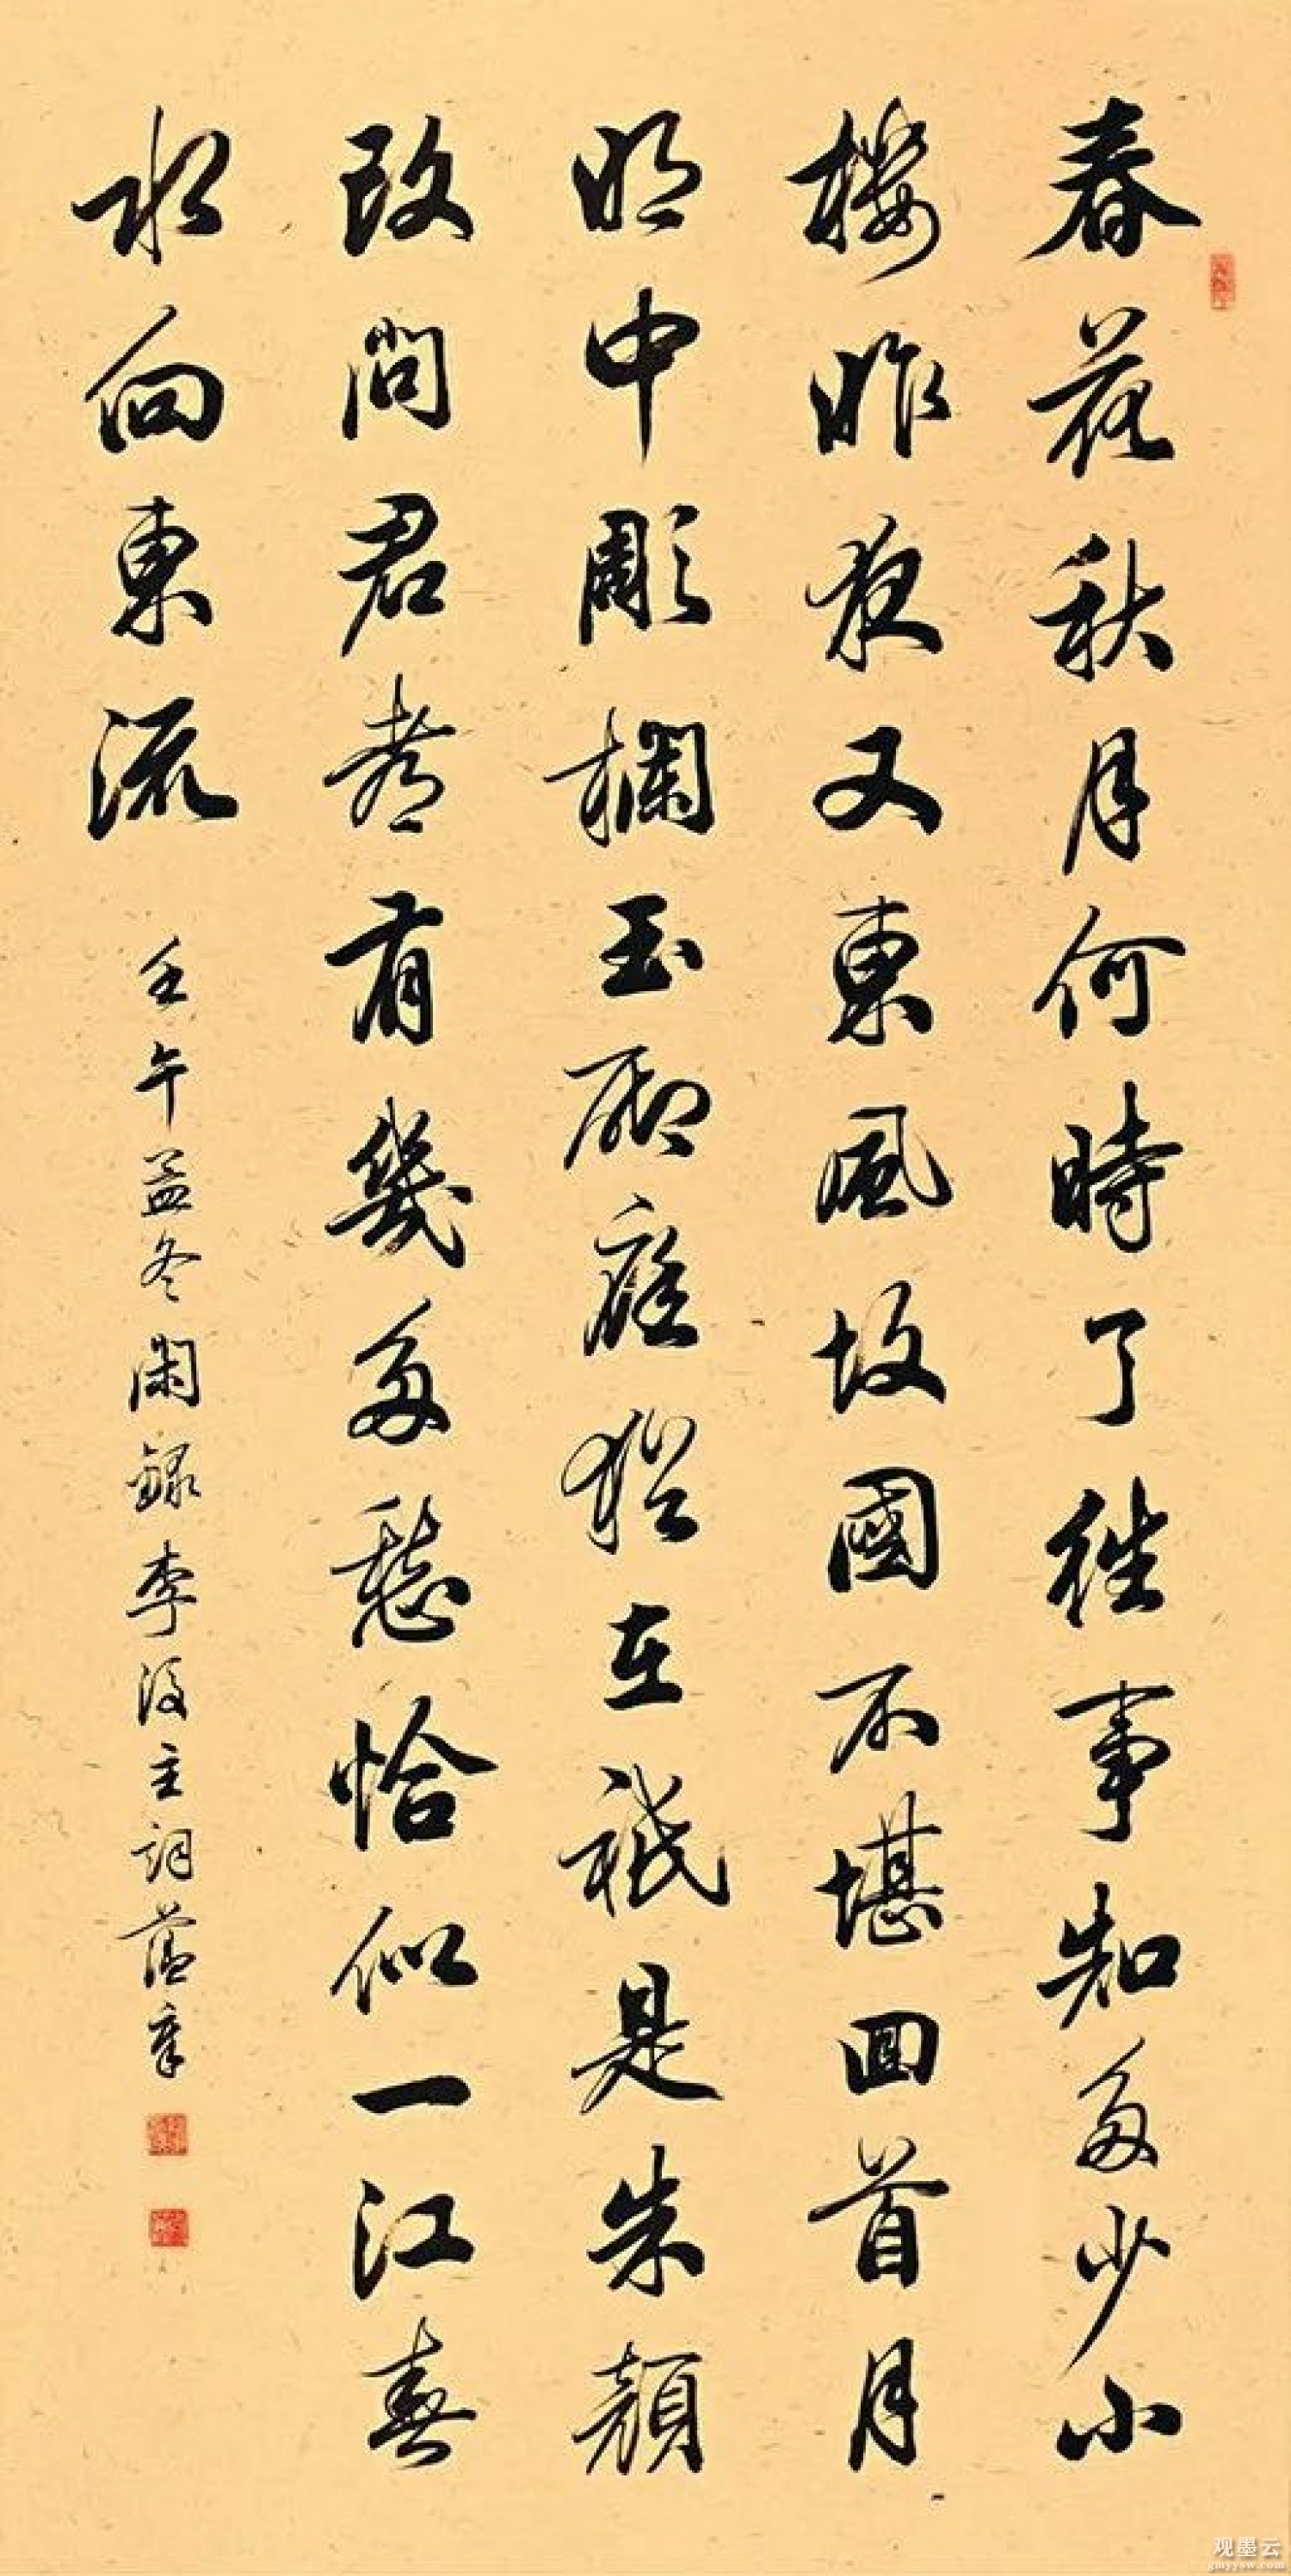 春花秋月何時了往事知多少小
樓昨夜又東風故國不堪回首月
明中彫欄玉砌應猶在祇是朱顏
改問君都有幾多愁恰似一江春
水向東流
壬午孟冬閑錄李後主詞蓝章
观墨云
gmyysw.com